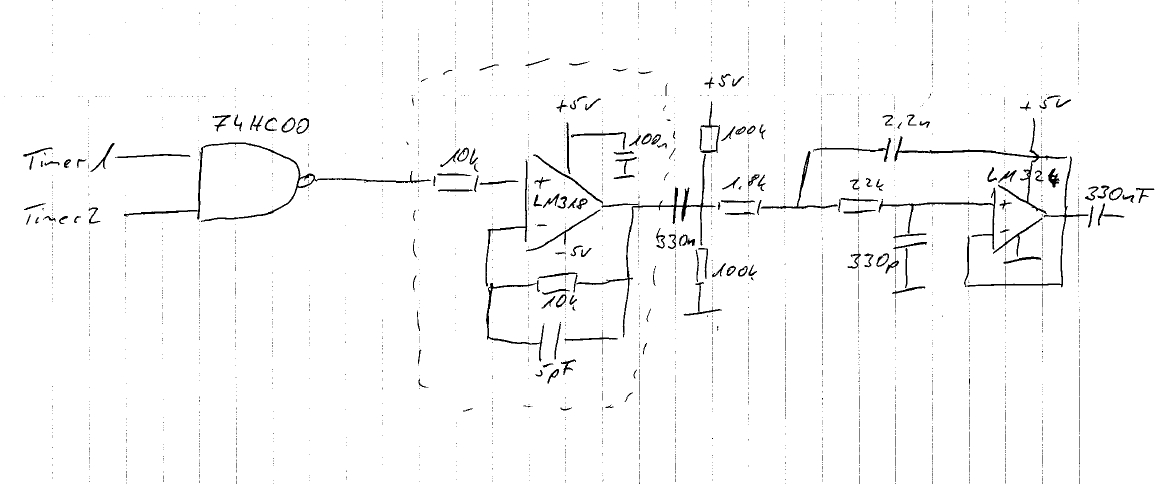 74HC00
Timer 1
Timer 2
10k
+5V
100n
+
LM318
-
-5V
10k
5pF
330n
+5V
100k
100k
1,8k
2,2n
22k
330p
+5V
LM324
+
-
330nF